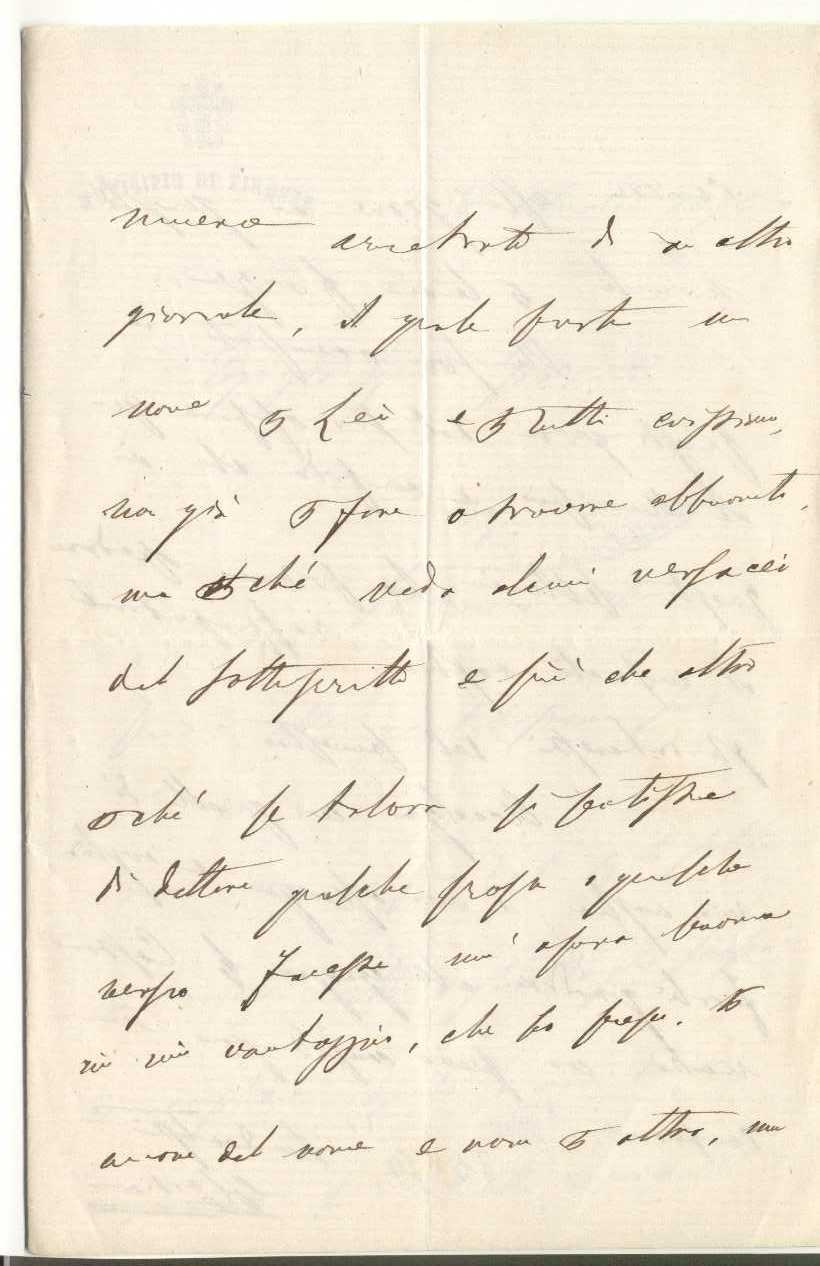 numero arretrato di un altro
giornale, il quale porta un
nome p Lei e p tutti carissimo,
non già p fare o trovarne abbuonati,
ma pché veda alcuni versacci
del sottoscritto e più che altro
pché se talora si sentisse
di dettare qualche prosa o qualche
verso facesse un' opera buona
in mio vantaggio, che la prego. p
amore del nome e non p altro, un